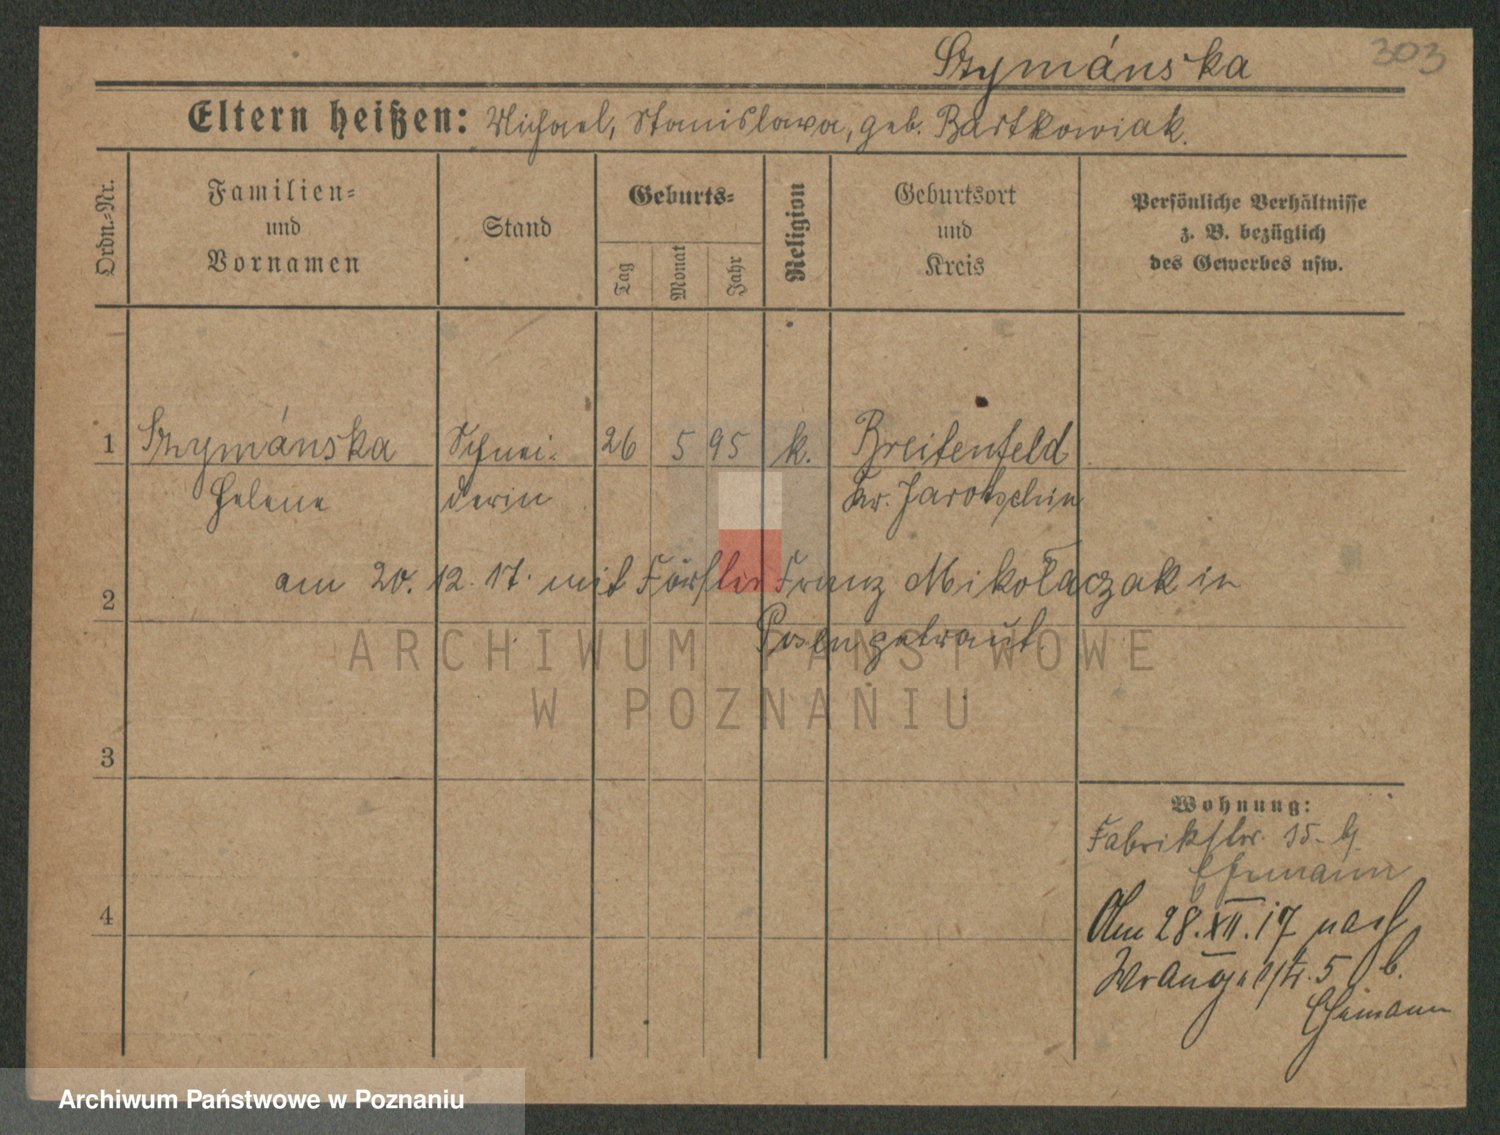 Szymánska
303
Eltern heißen: Michael, Stanislawa, geb. Bartkowiak.
Ordn.-Nr.
Familien-
und
Vornamen
Stand
Geburts-
Tag
Monat
Jahr
Religion
Geburtsort
und
Kreis
Persönliche Verhältnisse
z. B. bezüglich
des Gewerbes usw.
1 Szymánska Schnei- 26 5 95 k. Breitenfeld
Helene derin Kr. Jarotschin
am 20. 12. 17. mit Förster Franz Mikołaczak in
2
Posen getraut.
ARCHIWUM PAŃSTWOWE
W POZNANIU
3
Wohnung:
Fabrikstr. 15. b.
Ehemann
4
Am 28.XII.17 nach
5 b.
Ehemann
Archiwum Państwowe w Poznaniu